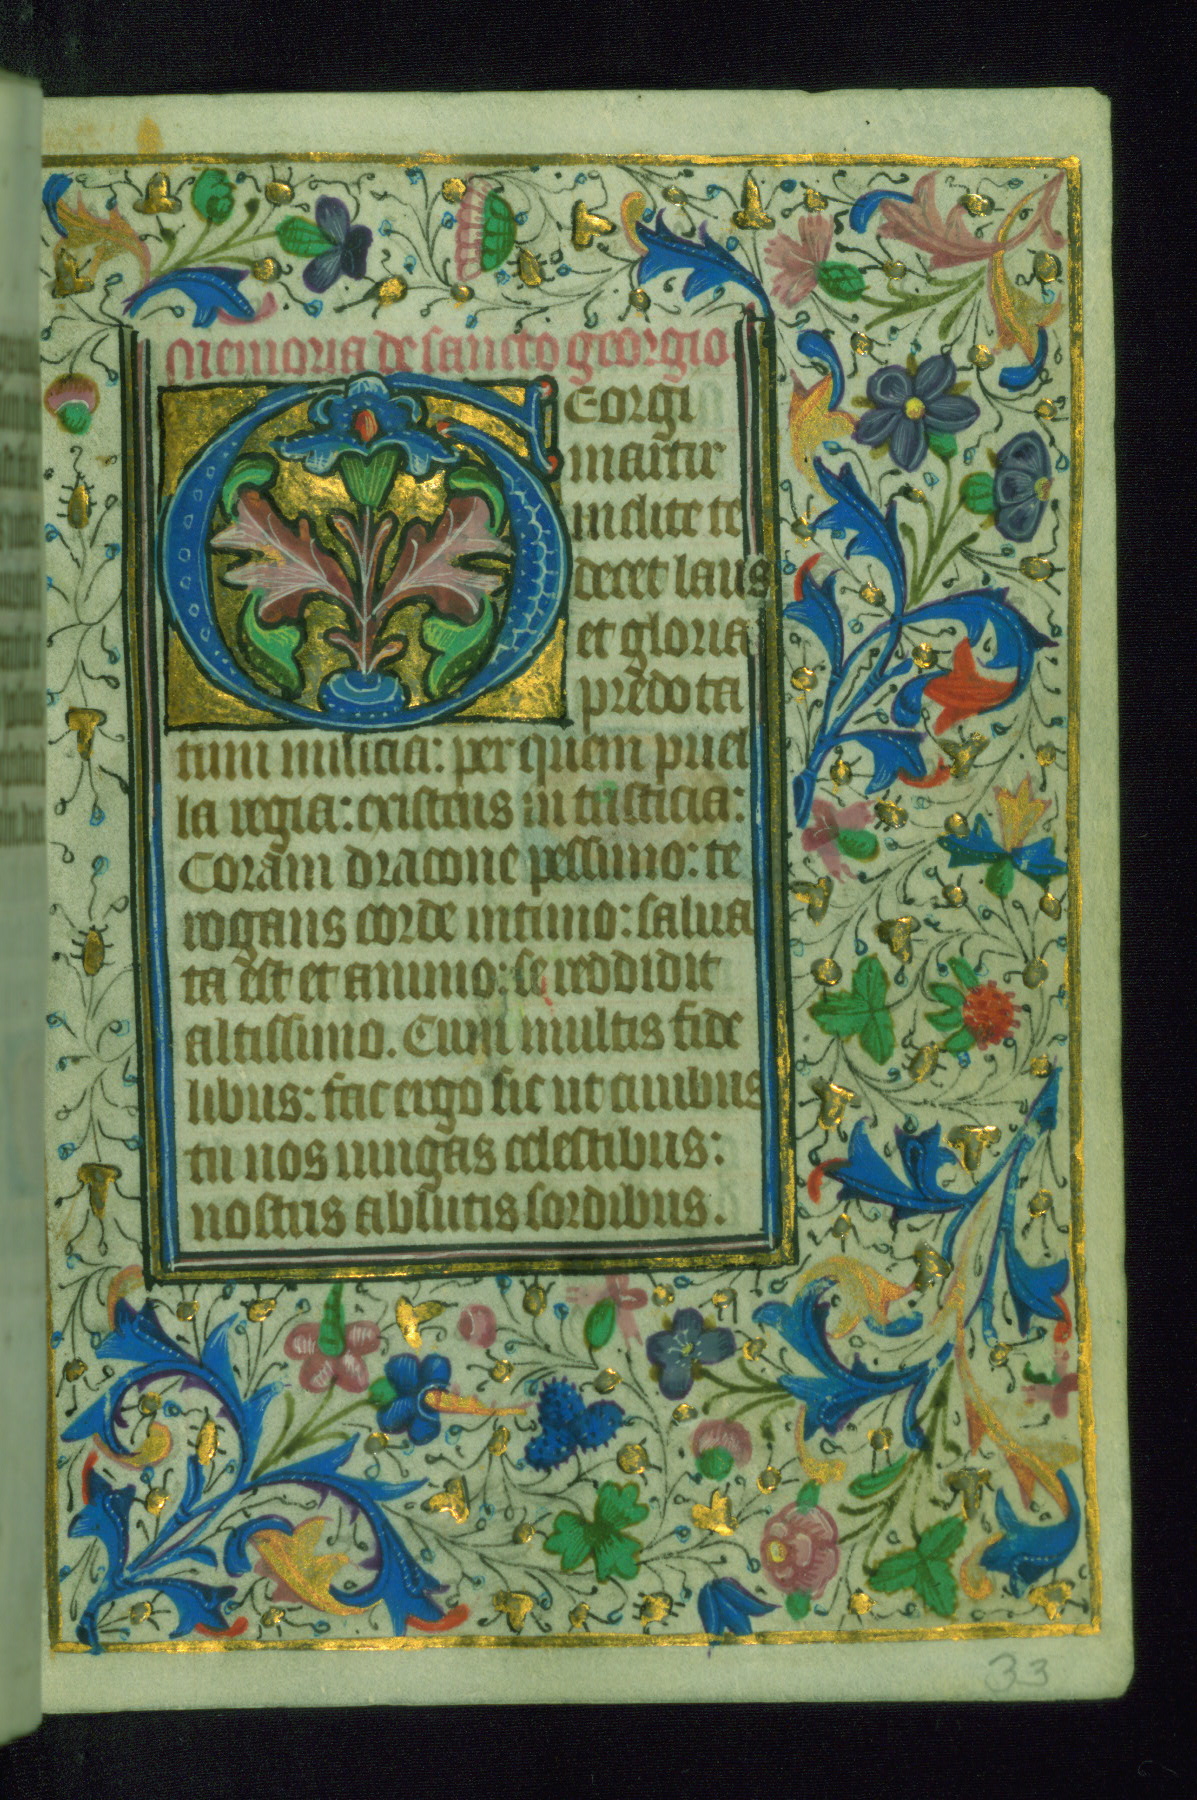 memoria de sancto georgio.
GEorgi
martir
inclite te
decet laus
et gloria
predota
tum milicia: per quem puel
la regia: existens in tristicia:
Coram dracone pessimo: te
rogans corde intimo: salua
ta est et animo: se reddidit
altissimo. Cum multis fide
libus: fac ergo sic ut ciuibus
tu nos iungas celestibus:
nostris ablutis sordibus.
33